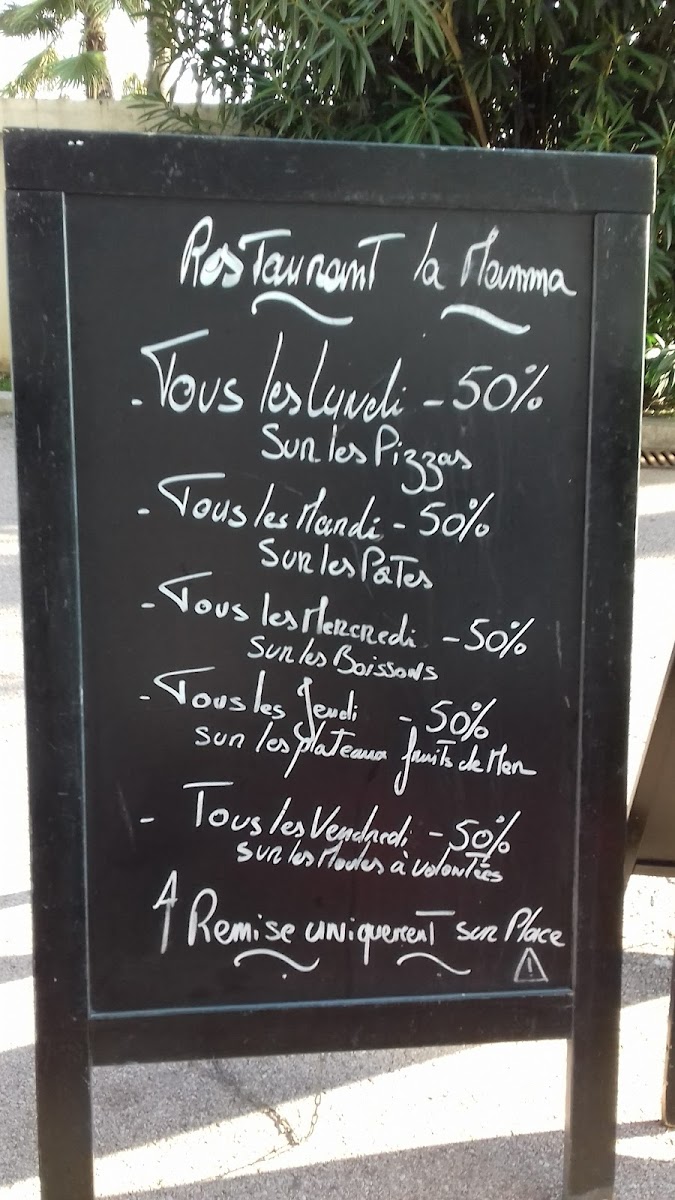 Restaurant la Mamma
- Tous les Lundi - 50%
Sur les Pizzas
- Tous les Mardi - 50%
Sur les Pates
- Tous les Mercredi - 50%
Sur les Boissons
- Tous les Jeudi - 50%
sur les plateaux fruits de Mer
- Tous les Vendredi - 50%
sur les Moules à volontées
Remise uniquement sur Place
!